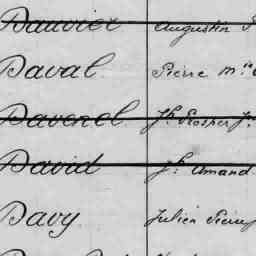 Dauvier Augustin
Daval Pierre M.ie
Davenel Jh Prosper
David Jh Amand
Davy Julien Pierre